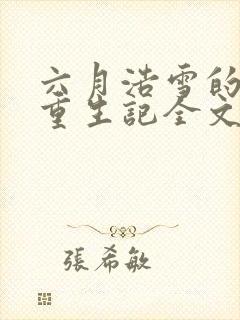 六月浩雪的
重生記全文
張希敏